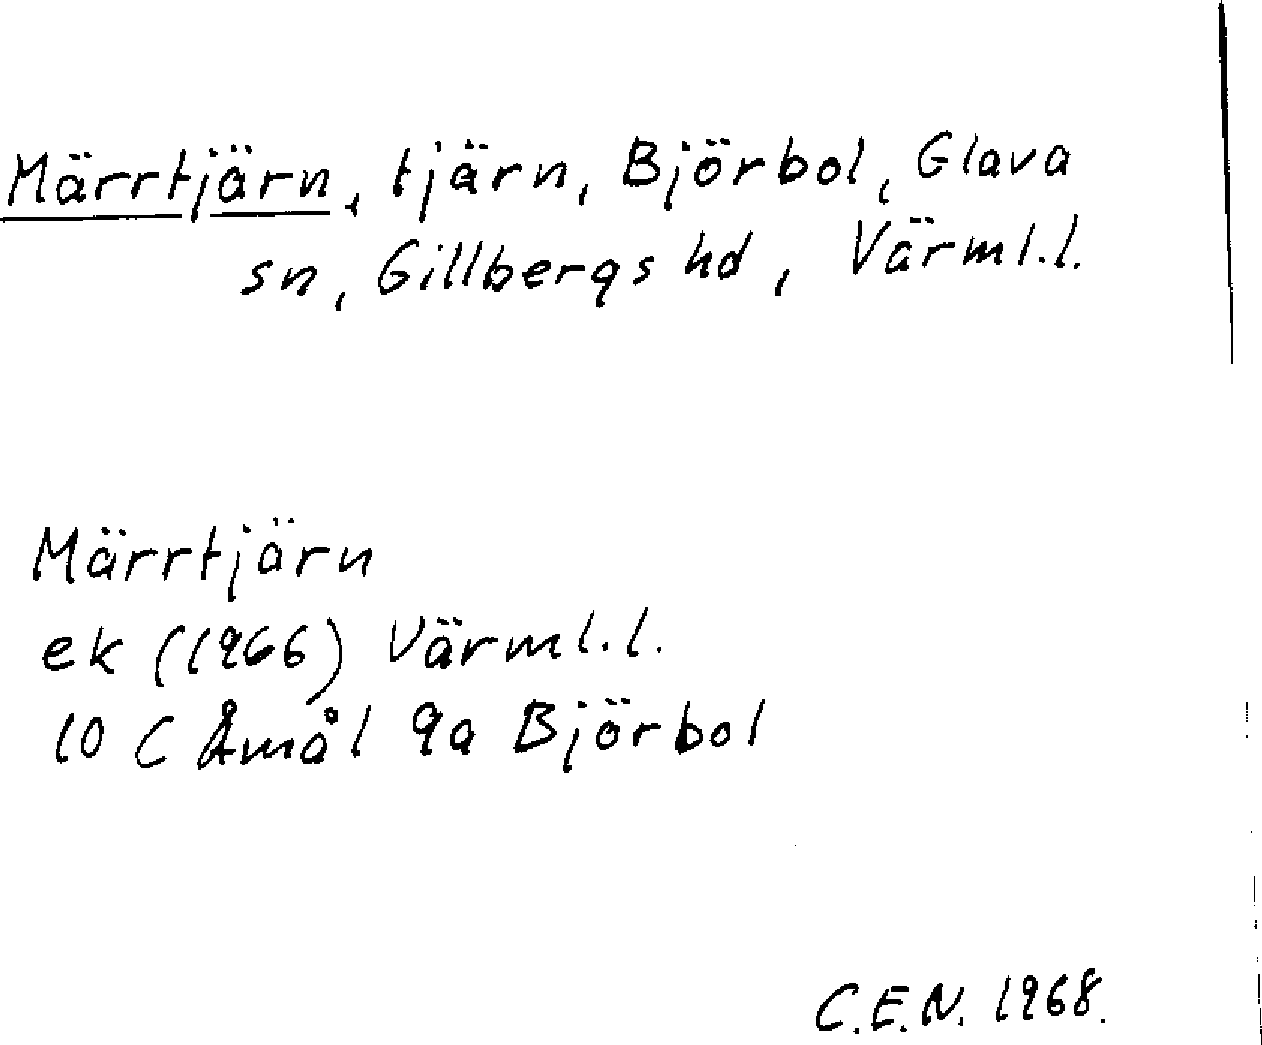 Märrtjärn, tjärn, Björbol, Glava
sn, Gillbergs hd, Värml.l.
Märrtjärn
ek (1966) Värml.l.
10 C Åmål 9a Björbol
C.E.N. 1968.